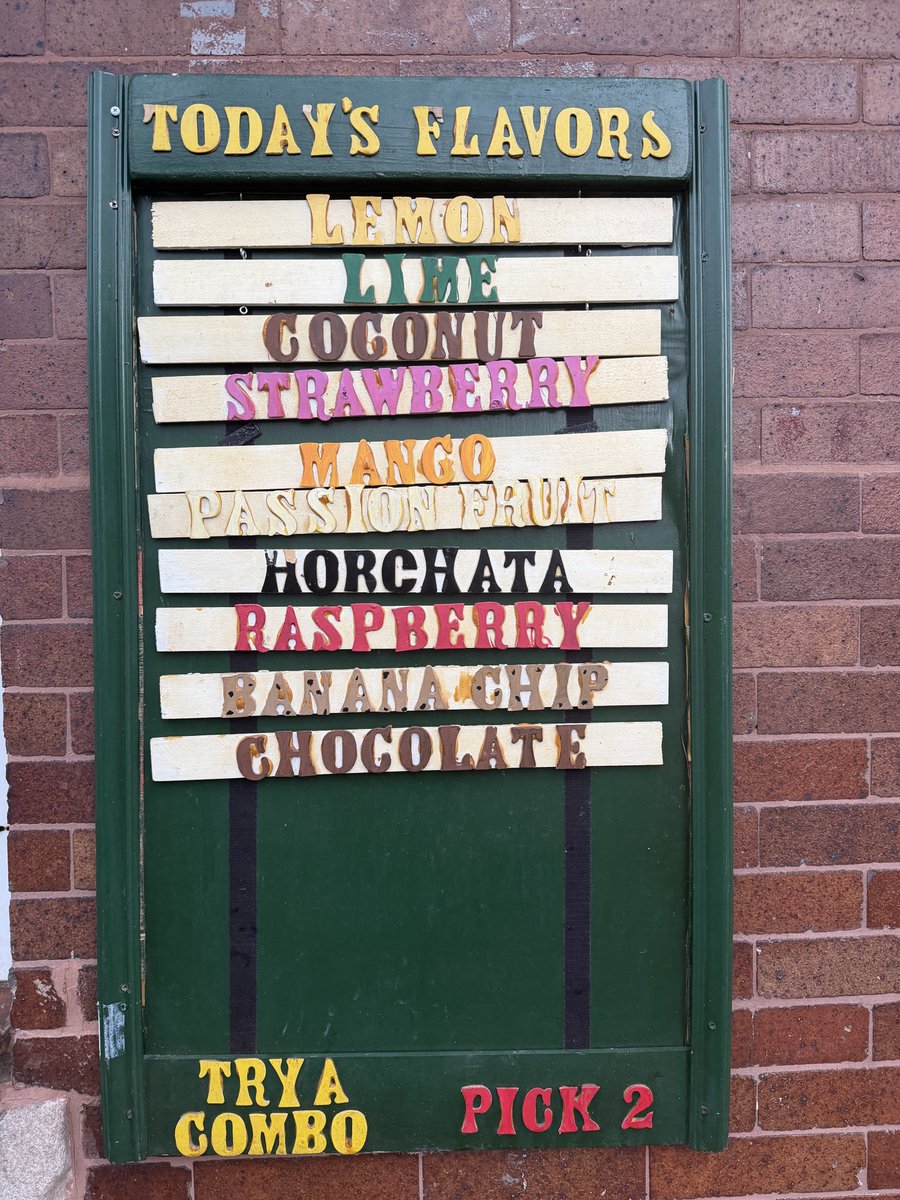 TODAY'S FLAVORS
LEMON
LIME
COCONUT
STRAWBERRY
MANGO
PASSION FRUIT
HORCHATA
RASPBERRY
BANANA CHIP
CHOCOLATE
TRY A
COMBO
PICK 2